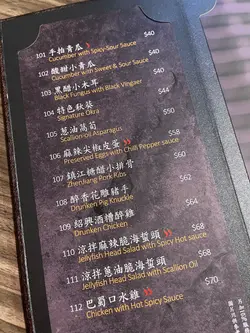 101 手拍青瓜
Cucumber with Spicy Sour Sauce $40
102 酸甜小青瓜
Cucumber with Sweet & Sour Sauce $40
103 黑醋小木耳
Black Fungus with Black Vingaer $40
104 特色秋葵
Signature Okra $44
105 蔥油萵筍
Scallion Oil Asparagus $50
106 麻辣尖椒皮蛋
Preserved Eggs with Chili Pepper sauce $58
107 鎮江糖醋小排骨
ZhenJiang Pork Ribs $62
108 醉香花雕豬手
Drunken Pig Knuckle $64
109 紹興酒糟醉雞
Drunken Chicken $68
110 涼拌麻辣脆海蜇頭
Jellyfish Head Salad with Spicy Hot sauce $68
111 涼拌蔥油脆海蜇頭
Jellyfish Head Salad with Scallion Oil $68
112 巴蜀口水雞
Chicken with Hot Spicy Sauce $70